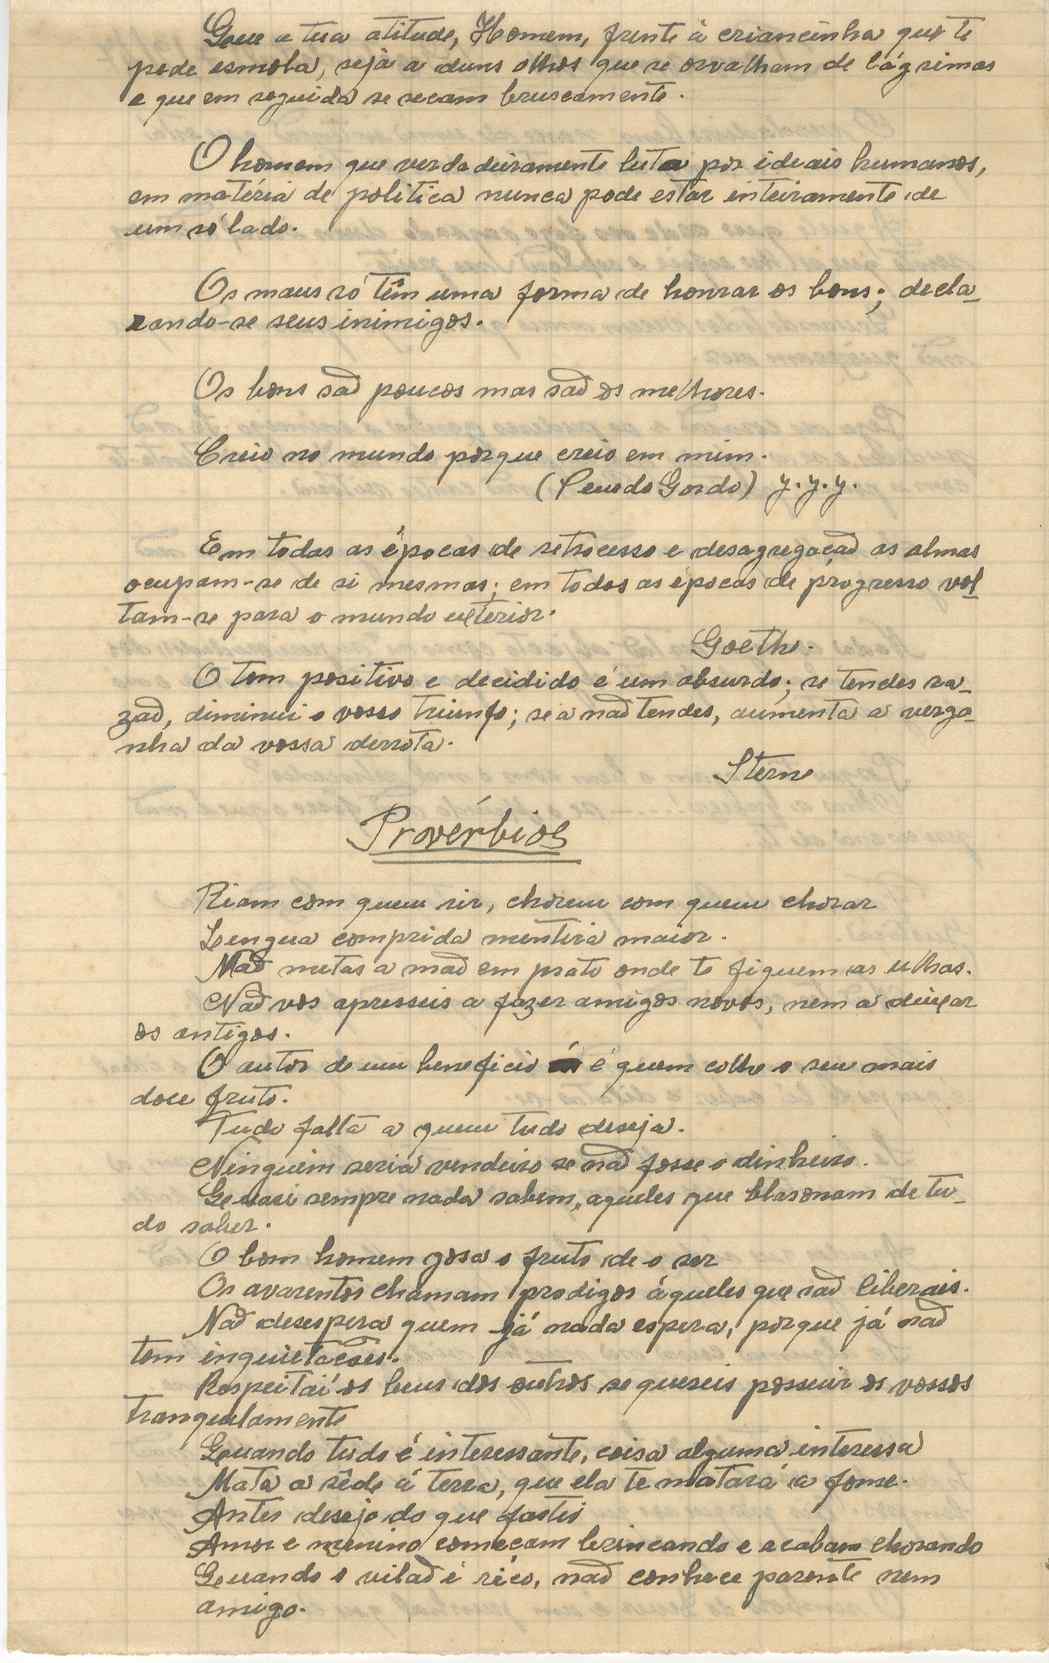 Que a tua atitude, Homem, frente à criancinha que te
pede esmola, seja a duns olhos que se orvalham de lágrimas
e que em seguida se secam bruscamente.
O homem que verdadeiramente luta por ideais humanos,
em matéria de politica nunca pode estar inteiramente de
um só lado.
Os maus só têm uma forma de honrar os bons; decla_
rando-se seus inimigos.
Os bons são poucos mas são os melhores.
Creio no mundo porque creio em mim.
(Penedo Gordo) y.y.y.
Em todas as épocas de retrocesso e desagregação as almas
ocupam-se de si mesmas; em todas as épocas de progresso vol_
tam-se para o mundo exterior.
Goethe.
O tom positivo e decidido é um absurdo; se tendes ra_
zão, diminui o vosso triunfo; se a não tendes, aumenta a vergo_
nha da vossa derrota.
Sterne
Provérbios
Riam com quem rir, chorem com quem chorar
Lengua comprida mentira maior.
Não metas a mão em prato onde te fiquem as unhas.
Não vos apresseis a fazer amigos novos, nem a deixar
os antigos.
O autor de um beneficio é quem colhe o seu mais
doce fruto.
Tudo falta a quem tudo deseja.
Ninguém seria vendeiro se não fosse o dinheiro.
Quasi sempre nada sabem, aqueles que blasonam de tu_
do saber.
O bom homem gosa o fruto de o ser
Os avarentos chamam prodigos áqueles que são liberais.
Não desespera quem já nada espera, porque já não
tem inquietações.
Respeitai os bens dos outros se quereis possuir os vossos
tranquilamente
Quando tudo é interessante, coisa alguma interessa
Mata a sêde á terra, que ela te matará a fome.
Antes desejo do que fastio
Amor e menino começam brincando e acabam chorando
Quando o vilão é rico, não conhece parente nem
amigo.